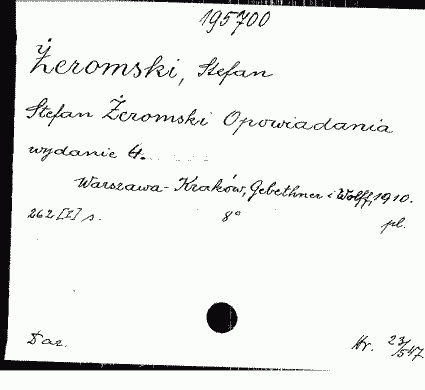 195700
Żeromski, Stefan
Stefan Żeromski Opowiadania
wydanie 4.
Warszawa-Kraków, Gebethner i Wolff, 1910.
262 [2] s. 8° pl.
Dar. Nr. 23/547